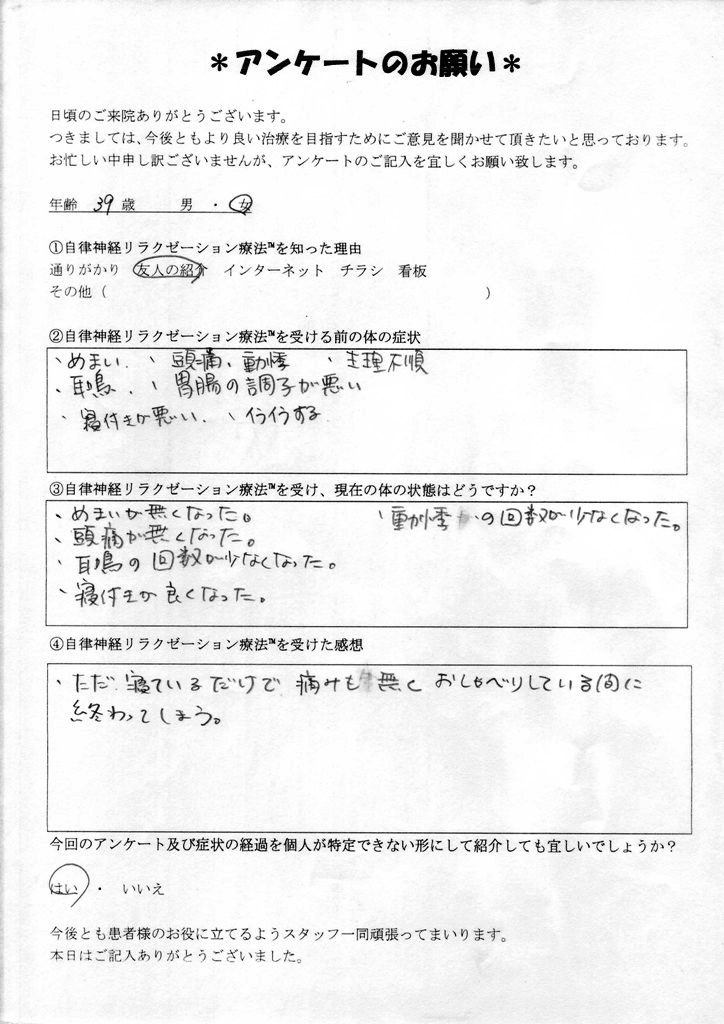 ＊アンケートのお願い＊
日頃のご来院ありがとうございます。
つきましては、今後ともより良い治療を目指すためにご意見を聞かせて頂きたいと思っております。
お忙しい中申し訳ございませんが、アンケートのご記入を宜しくお願い致します。
年齢 39 歳 男 ・ 女
①自律神経リラクゼーション療法™を知った理由
通りがかり 友人の紹介 インターネット チラシ 看板
その他（ ）
②自律神経リラクゼーション療法™を受ける前の体の症状
、めまい、、頭痛、動悸 、生理不順
、耳鳴、、胃腸の調子が悪い
、寝付きが悪い、、イライラする
③自律神経リラクゼーション療法™を受け、現在の体の状態はどうですか？
、めまいが無くなった。 、動悸の回数が少なくなった。
、頭痛が無くなった。
、耳鳴の回数が少なくなった。
、寝付きが良くなった。
④自律神経リラクゼーション療法™を受けた感想
、ただ寝ているだけで痛みも無くおしゃべりしている間に
終わってしまう。
今回のアンケート及び症状の経過を個人が特定できない形にして紹介しても宜しいでしょうか？
はい ・ いいえ
今後とも患者様のお役に立てるようスタッフ一同頑張ってまいります。
本日はご記入ありがとうございました。